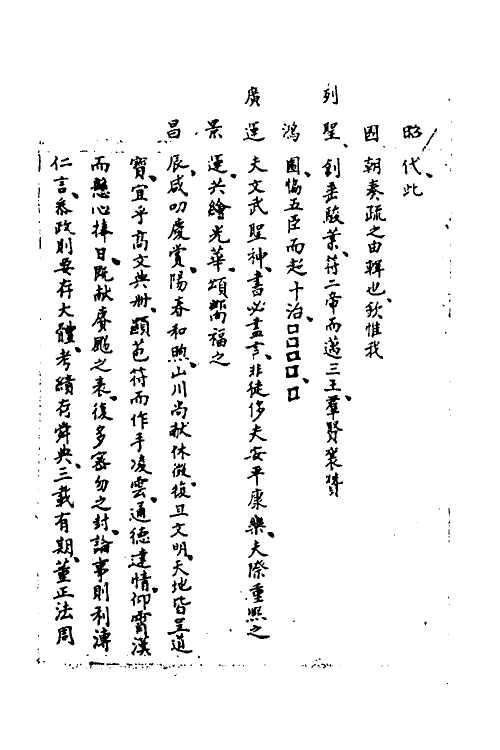 昭代此
國朝奏疏之由輯也欽惟我
列聖創垂駿業符二帝而邁三王羣賢襄贊
鴻圖愓五臣而起十治□□□□□
廣運夫文武聖神書必盡言非徒侈夫安平康樂夫際重熙之
景運共繪光華頌嚮福之
昌辰咸叨慶賞陽春和煦山川尚献休徵復旦文明天地皆呈道
寶宜乎高文典冊顯苞符而作手凌雲通德達情仰霄漢
而懸心捧日既献賡颺之表復多密勿之封論事則利溥
仁言叅政則要存大體考績存舜典三載有期董正法周